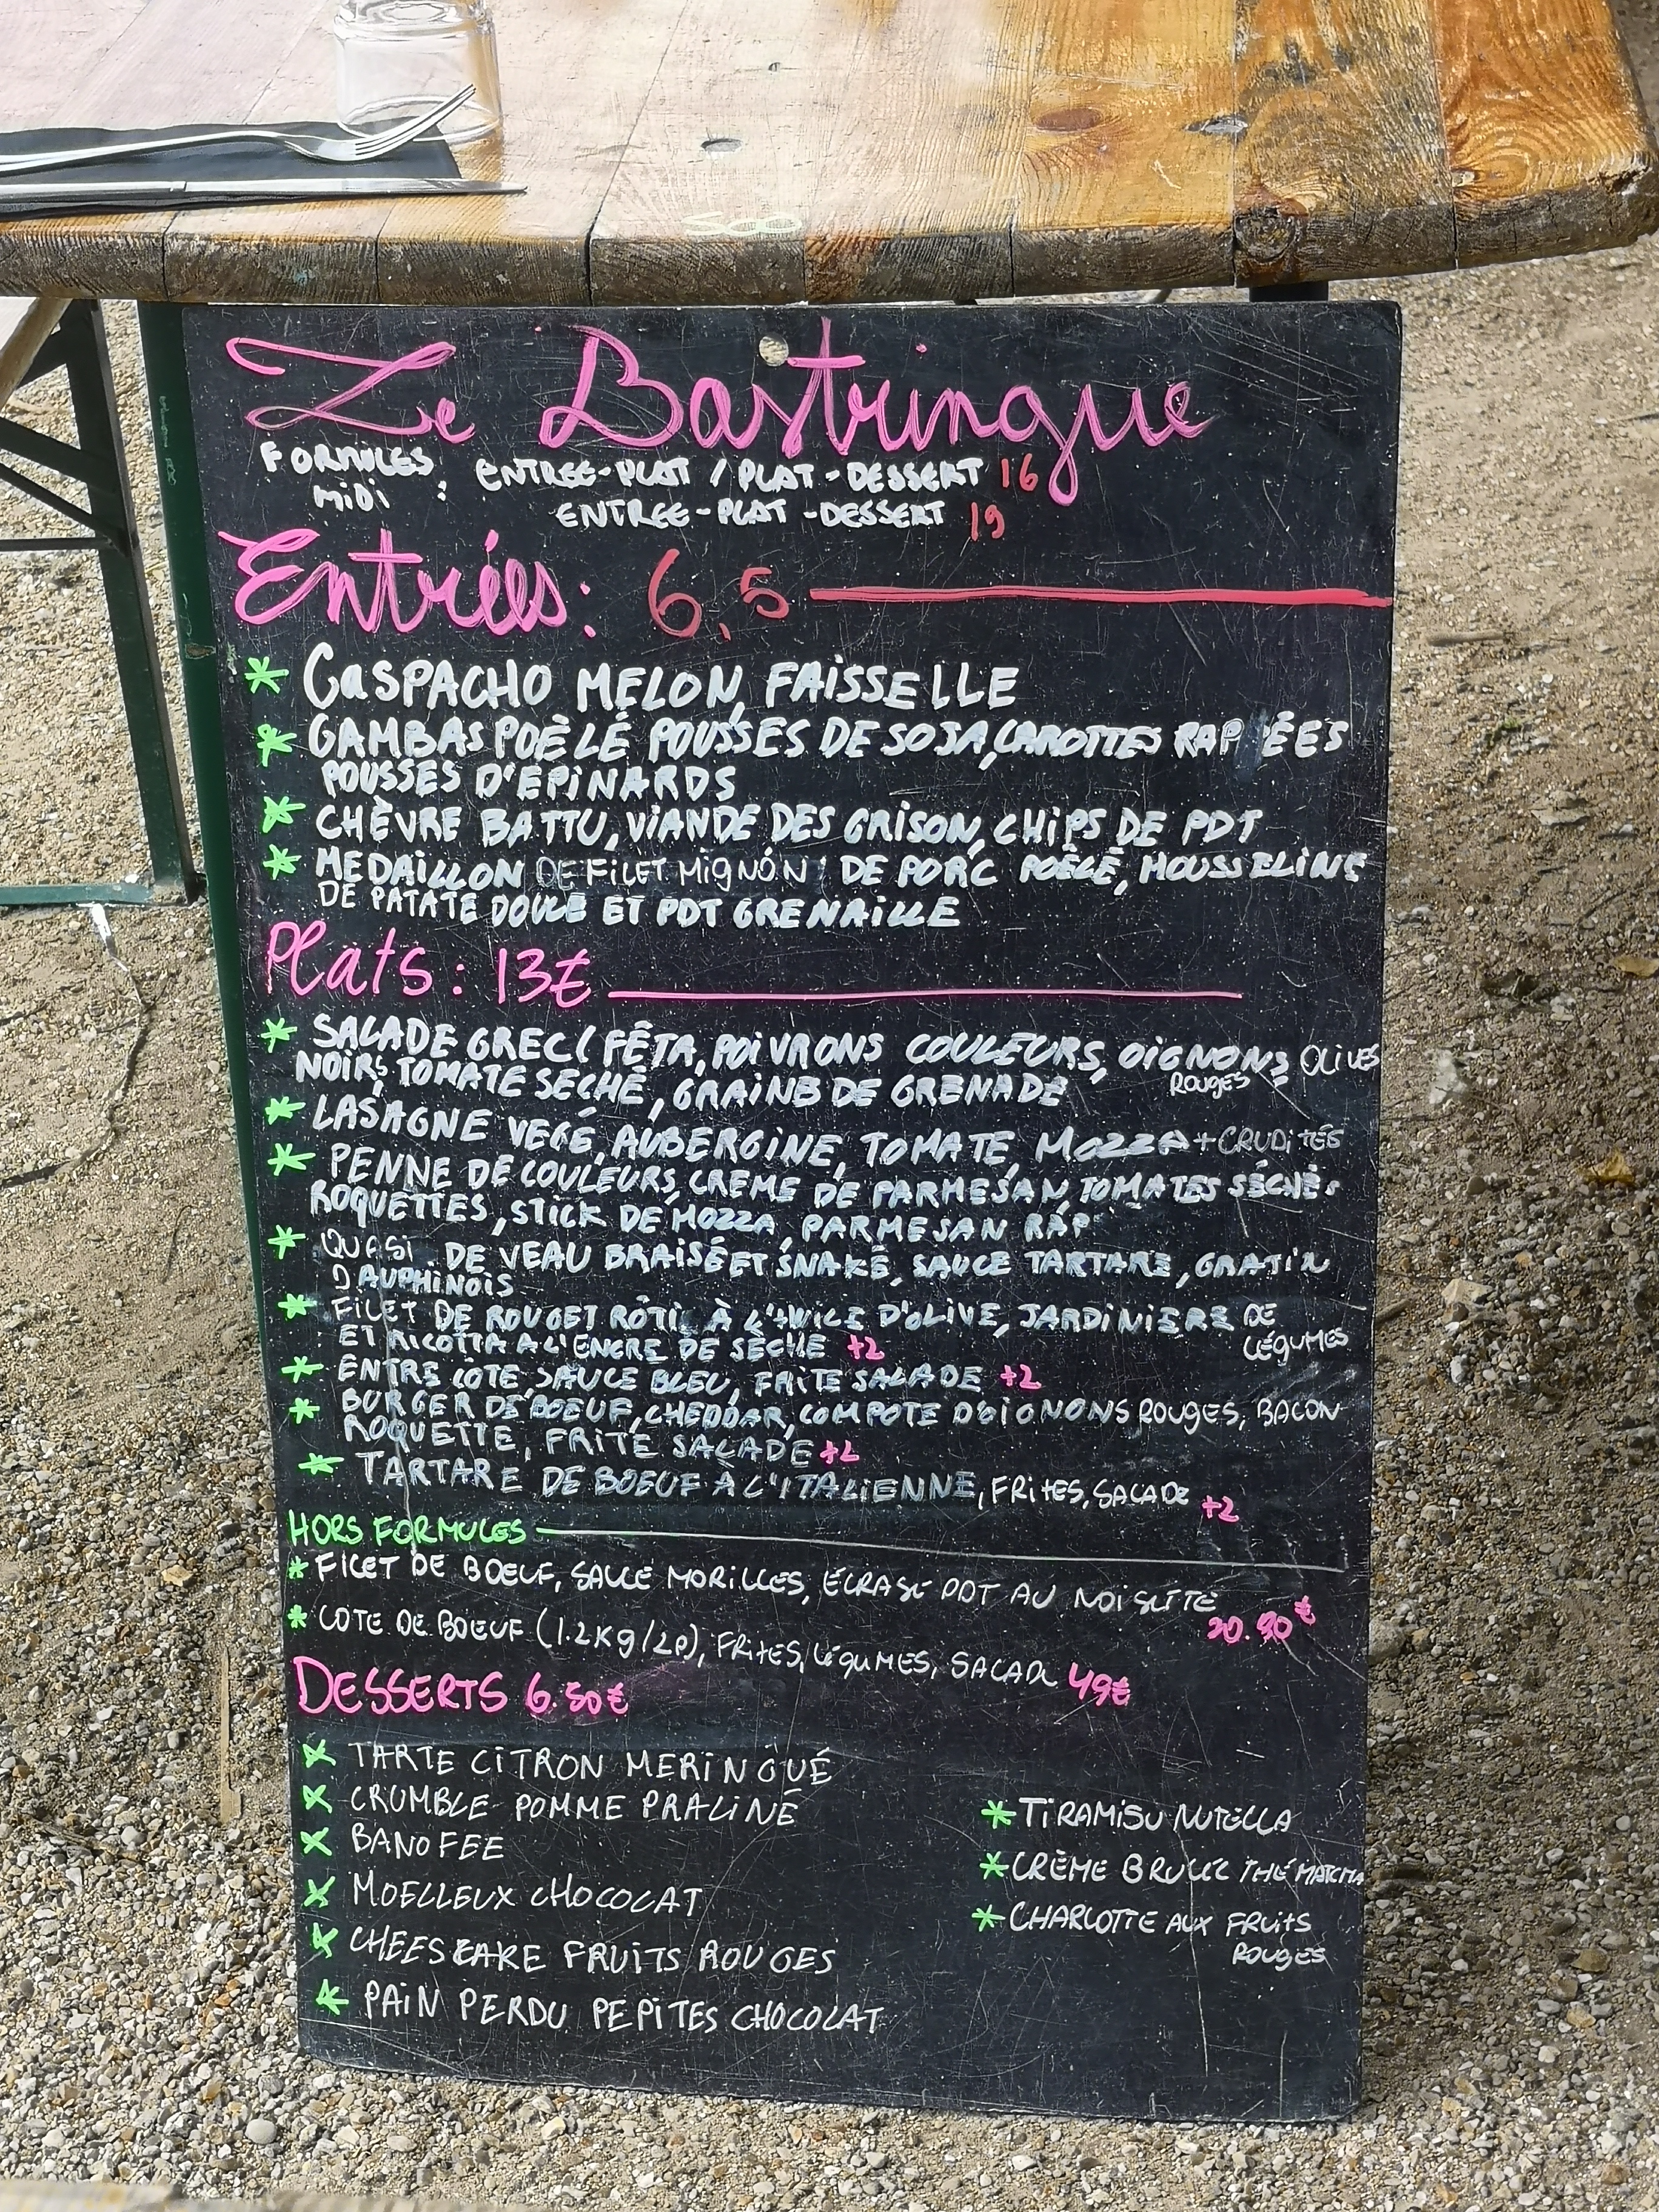 Ze Bastringue
FORMULES MIDI : ENTREE-PLAT / PLAT-DESSERT 16
ENTREE-PLAT-DESSERT 19
Entrées: 6,5
* GASPACHO MELON, FAISSELLE
* GAMBAS POÈLÉ POUSSES DE SOJA, CAROTTES RAPPÉES
POUSSES D'EPINARDS
* CHÈVRE BATTU, VIANDE DES GRISON, CHIPS DE PDT
* MEDAILLON DE FILET MIGNON DE PORC POÊLÉ, MOUSSELINE
DE PATATE DOUCE ET PDT GRENAILLE
Plats : 13€
* SALADE GREC ( FÊTA, POIVRONS COULEURS, OIGNONS ROUGES OLIVES
NOIRS, TOMATE SECHÉ, GRAINE DE GRENADE
* LASAGNE VEGÉ, AUBERGINE, TOMATE, MOZZA + CRUDITÉS
* PENNE DE COULEURS, CREME DE PARMESAN, TOMATES SÉCHÉS
ROQUETTES, STICK DE MOZZA, PARMESAN RAP
* QUASI DE VEAU BRAISÉ ET SNAKÉ, SAUCE TARTARE, GRATIN
DAUPHINOIS
* FILET DE ROUGET RÔTI À L'HUILE D'OLIVE, JARDINIERE DE LÉGUMES
ET RICOTTA A L'ENCRE DE SÈCHE +2
* ENTRE COTE SAUCE BLEU, FRITE SALADE +2
* BURGER DE BOEUF, CHEDDAR, COMPOTE D'OIGNONS ROUGES, BACON
ROQUETTE, FRITE SALADE +2
* TARTARE DE BOEUF A L'ITALIENNE, FRITES, SALADE +2
HORS FORMULES
* FILET DE BOEUF, SAUCE MORILLES, ECRASÉ PDT AU NOISETTE 20.90€
* COTE DE BOEUF (1.2Kg/2P), FRITES, LÉGUMES, SALADE 49€
DESSERTS 6.50€
* TARTE CITRON MERINGUÉ
* CRUMBLE POMME PRALINÉ
* BANOFEE
* MOELLEUX CHOCOLAT
* CHEESCAKE FRUITS ROUGES
* PAIN PERDU PEPITES CHOCOLAT
* TIRAMISU NUTELLA
* CRÈME BRULÉE THÉ MATCHA
* CHARLOTTE AUX FRUITS
ROUGES